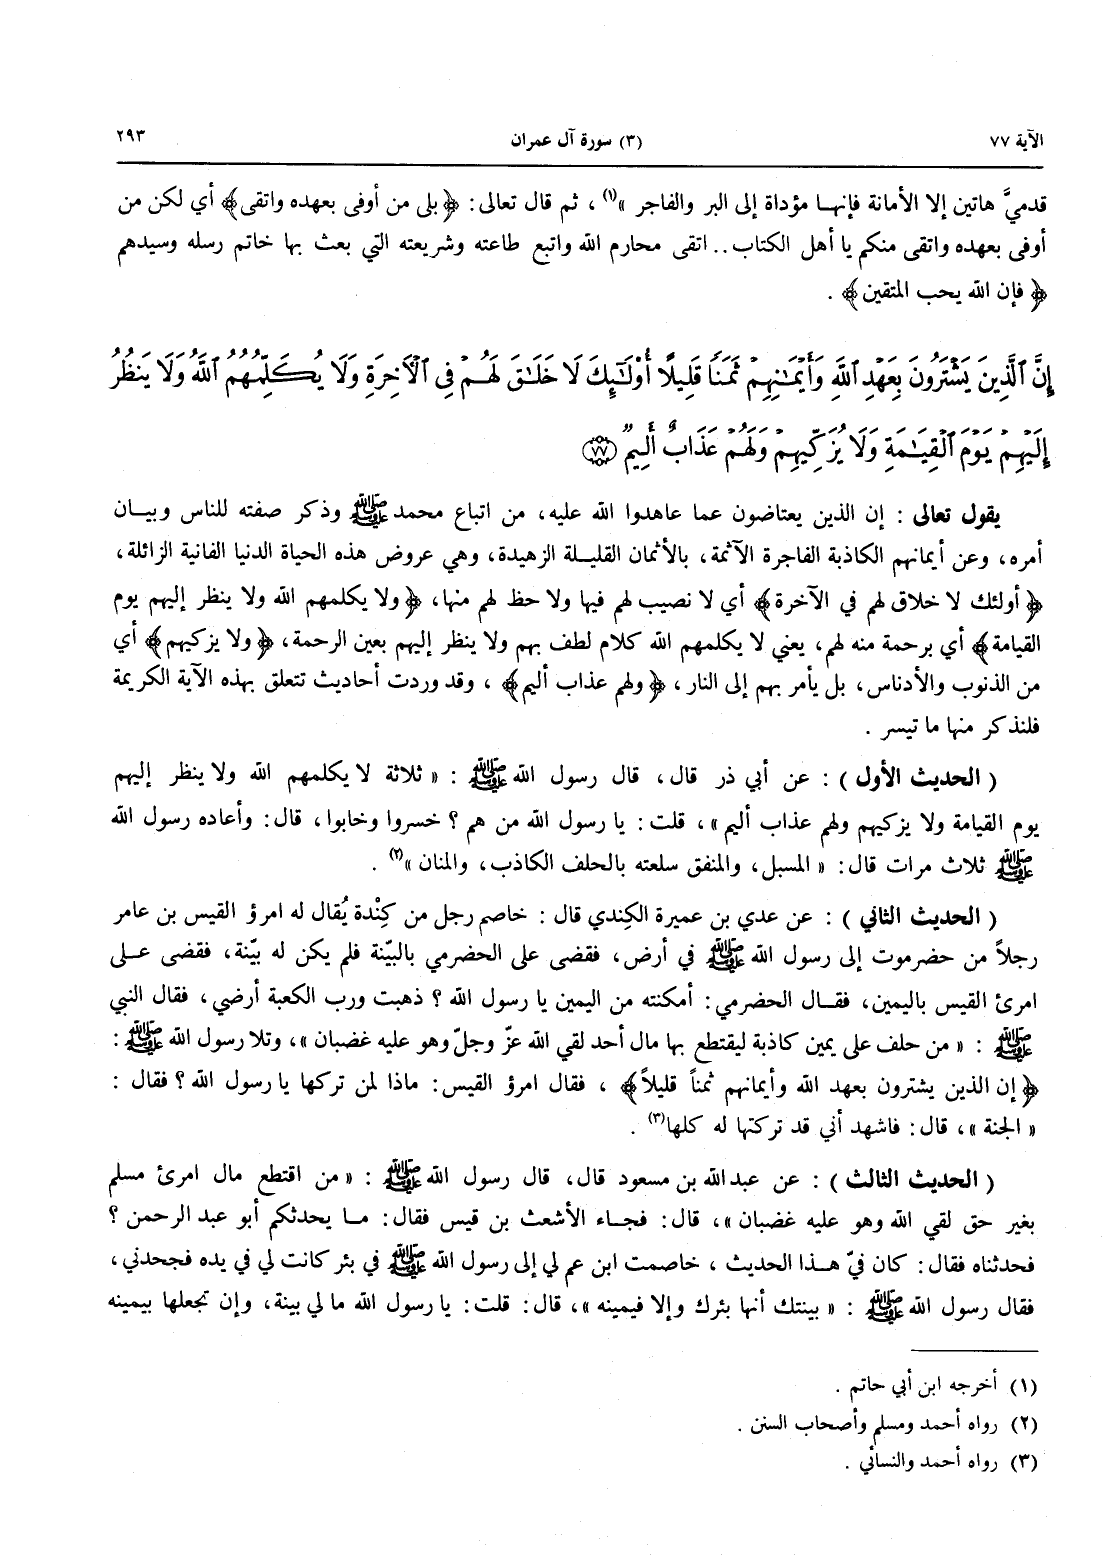 الآية ٧٧ (٣) سورة آل عمران ٢٩٣
قدميَّ هاتين إلا الأمانة فإنهـا مؤداة إلى البر والفاجر »(١) ، ثم قال تعالى: ﴿بلى من أوفى بعهده واتقى﴾ أي لكن من
أوفى بعهده واتقى منكم يا أهل الكتاب.. اتقى محارم الله واتبع طاعته وشريعته التي بعث بها خاتم رسله وسيدهم
﴿ فإن الله يحب المتقين﴾ .
إِنَّ ٱلَّذِينَ يَشْتَرُونَ بِعَهْدِ ٱللَّهِ وَأَيْمَٰنِهِمْ ثَمَنًا قَلِيلًا أُوْلَٰٓئِكَ لَا خَلَٰقَ لَهُمْ فِى ٱلْأٓخِرَةِ وَلَا يُكَلِّمُهُمُ ٱللَّهُ وَلَا يَنظُرُ
إِلَيْهِمْ يَوْمَ ٱلْقِيَٰمَةِ وَلَا يُزَكِّيهِمْ وَلَهُمْ عَذَابٌ أَلِيمٌ ﴿٧٧﴾
يقول تعالى : إن الذين يعتاضون عما عاهدوا الله عليه، من اتباع محمد ﷺ وذكر صفته للناس وبيـان
أمره، وعن أيمانهم الكاذبة الفاجرة الآثمة، بالأثمان القليـلة الزهيدة، وهي عروض هذه الحياة الدنيا الفانية الزائلة،
﴿ أولئك لا خلاق لهم في الآخرة﴾ أي لا نصيب لهم فيها ولا حظ لهم منها، ﴿ ولا يكلمهم الله ولا ينظر إليهم يوم
القيامة﴾ أي برحمة منه لهم، يعني لا يكلمهم الله كلام لطف بهم ولا ينظر إليهم بعين الرحمة، ﴿ولا يزكيهم﴾ أي
من الذنوب والأدناس، بل يأمر بهم إلى النار، ﴿ولهم عذاب أليم﴾ ، وقد وردت أحاديث تتعلق بهذه الآية الكريمة
فلنذكر منها ما تيسر .
( الحديث الأول ) : عن أبي ذر قال، قال رسول الله ﷺ : « ثلاثة لا يكلمهم الله ولا ينظر إليهم
يوم القيامة ولا يزكيهم ولهم عذاب أليم»، قلت: يا رسول الله من هم؟ خسروا وخابوا، قال: وأعاده رسول الله
ﷺ ثلاث مرات قال: « المسبل، والمنفق سلعته بالحلف الكاذب، والمنان »(٢) .
( الحديث الثاني ) : عن عدي بن عميرة الكِندي قال : خاصم رجل من كِنْدة يُقال له امرؤ القيس بن عامر
رجلاً من حضرموت إلى رسول الله ﷺ في أرض، فقضى على الحضرمي بالبيّنة فلم يكن له بيّنة، فقضى عـلى
امرئ القيس باليمين، فقـال الحضرمي: أمكنته من اليمين يا رسول الله؟ ذهبت ورب الكعبة أرضي، فقال النبي
ﷺ : « من حلف على يمين كاذبة ليقتطع بها مال أحد لقي الله عزّ وجلّ وهو عليه غضبان »، وتلا رسول الله ﷺ :
﴿إن الذين يشترون بعهد الله وأيمانهم ثمناً قليلاً﴾ ، فقال امرؤ القيس: ماذا لمن تركها يا رسول الله؟ فقال :
« الجنة »، قال: فاشهد أني قد تركتها له كلها(٣) .
( الحديث الثالث ) : عن عبد الله بن مسعود قال، قال رسول الله ﷺ : « من اقتطع مال امرئ مسلم
بغير حق لقي الله وهو عليه غضبان »، قال: فجـاء الأشعث بن قيس فقال: مـا يحدثكم أبو عبد الرحمن ؟
فحدثناه فقال: كان فيّ هـذا الحديث ، خاصمت ابن عم لي إلى رسول الله ﷺ في بئر كانت لي في يده فجحدني،
فقال رسول الله ﷺ : « بينتك أنها بئرك وإلا فيمينه »، قال: قلت: يا رسول الله ما لي بينة، وإن تجعلها بيمينه
(١) أخرجه ابن أبي حاتم .
(٢) رواه أحمد ومسلم وأصحاب السنن .
(٣) رواه أحمد والنسائي .